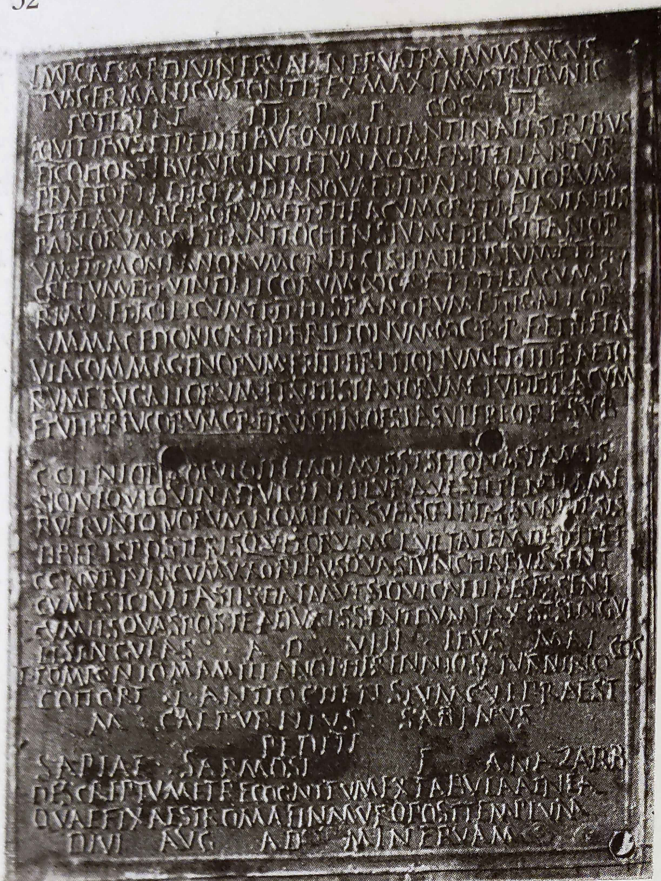 IMP CAESAR DIVI NERVAE F NERVA TRAIANVS AVGVS
TVS GERMANICVS PONTIFEX MAXIMVS TRIBVNIC
POTESTAT IIII P P COS III
EQVITIBVS ET PEDITIBVS QVI MILITANT IN ALIS TRIBVS
ET COHORTIBVS VIGINTI ET VNA QVAE APPELLANTVR
PRAETORIA ET CLAVDIA NOVA ET II PANNONIORVM
ET I FLAVIA BESSORVM ET I THRACVM C R ET I FLAVIA HIS
PANORVM ET I ANTIOCHENSIVM ET I LVSITANOR
VM ET I MONTANORVM C R ET I CISIPADENSIVM ET I
CRETVM ET I VINDELICORVM ET I THRACVM SY
RIACA ET I CILICVM ET II HISPANORVM ET II GALLOR
VM MACEDONICA ET II BRITTONVM C R P F ET II FLA
VIA COMMAGENORVM ET III BRITTONVM ET IIII RAETO
RVM ET V GALLORVM ET V HISPANORVM ET VI THRACVM
ET VII BREVCORVM C R ET SVNT IN MOESIA SVPERIORE SVB
C CILNIO PROCVLO ITEM DIMISSIS HONESTA MIS
SIONE QVI QVINA ET VICENA PLVRAVE STIPENDIA ME
RVERVNT QVORVM NOMINA SVBSCRIPTA SVNT IPSIS
LIBERIS POSTERISQVE EORVM CIVITATEM DEDIT ET
CONVBIVM CVM VXORIBVS QVAS TVNC HABVISSENT
CVM EST CIVITAS IIS DATA AVT SI QVI CAELIBES ESSENT
CVM IIS QVAS POSTEA DVXISSENT DVMTAXAT SINGV
LI SINGVLAS A D VIII IDVS MAI
T POMPONIO MAMILIANO L HERENNIO SATVRNINO COS
COHORT I ANTIOCHENSIVM CVI PRAEST
M CALPVRNIVS SABINVS
PEDITI
SAPIAE SARMOSI F ANAZARB
DESCRIPTVM ET RECOGNITVM EX TABVLA AENEA
QVAE FIXA EST ROMAE IN MVRO POST TEMPLVM
DIVI AVG AD MINERVAM